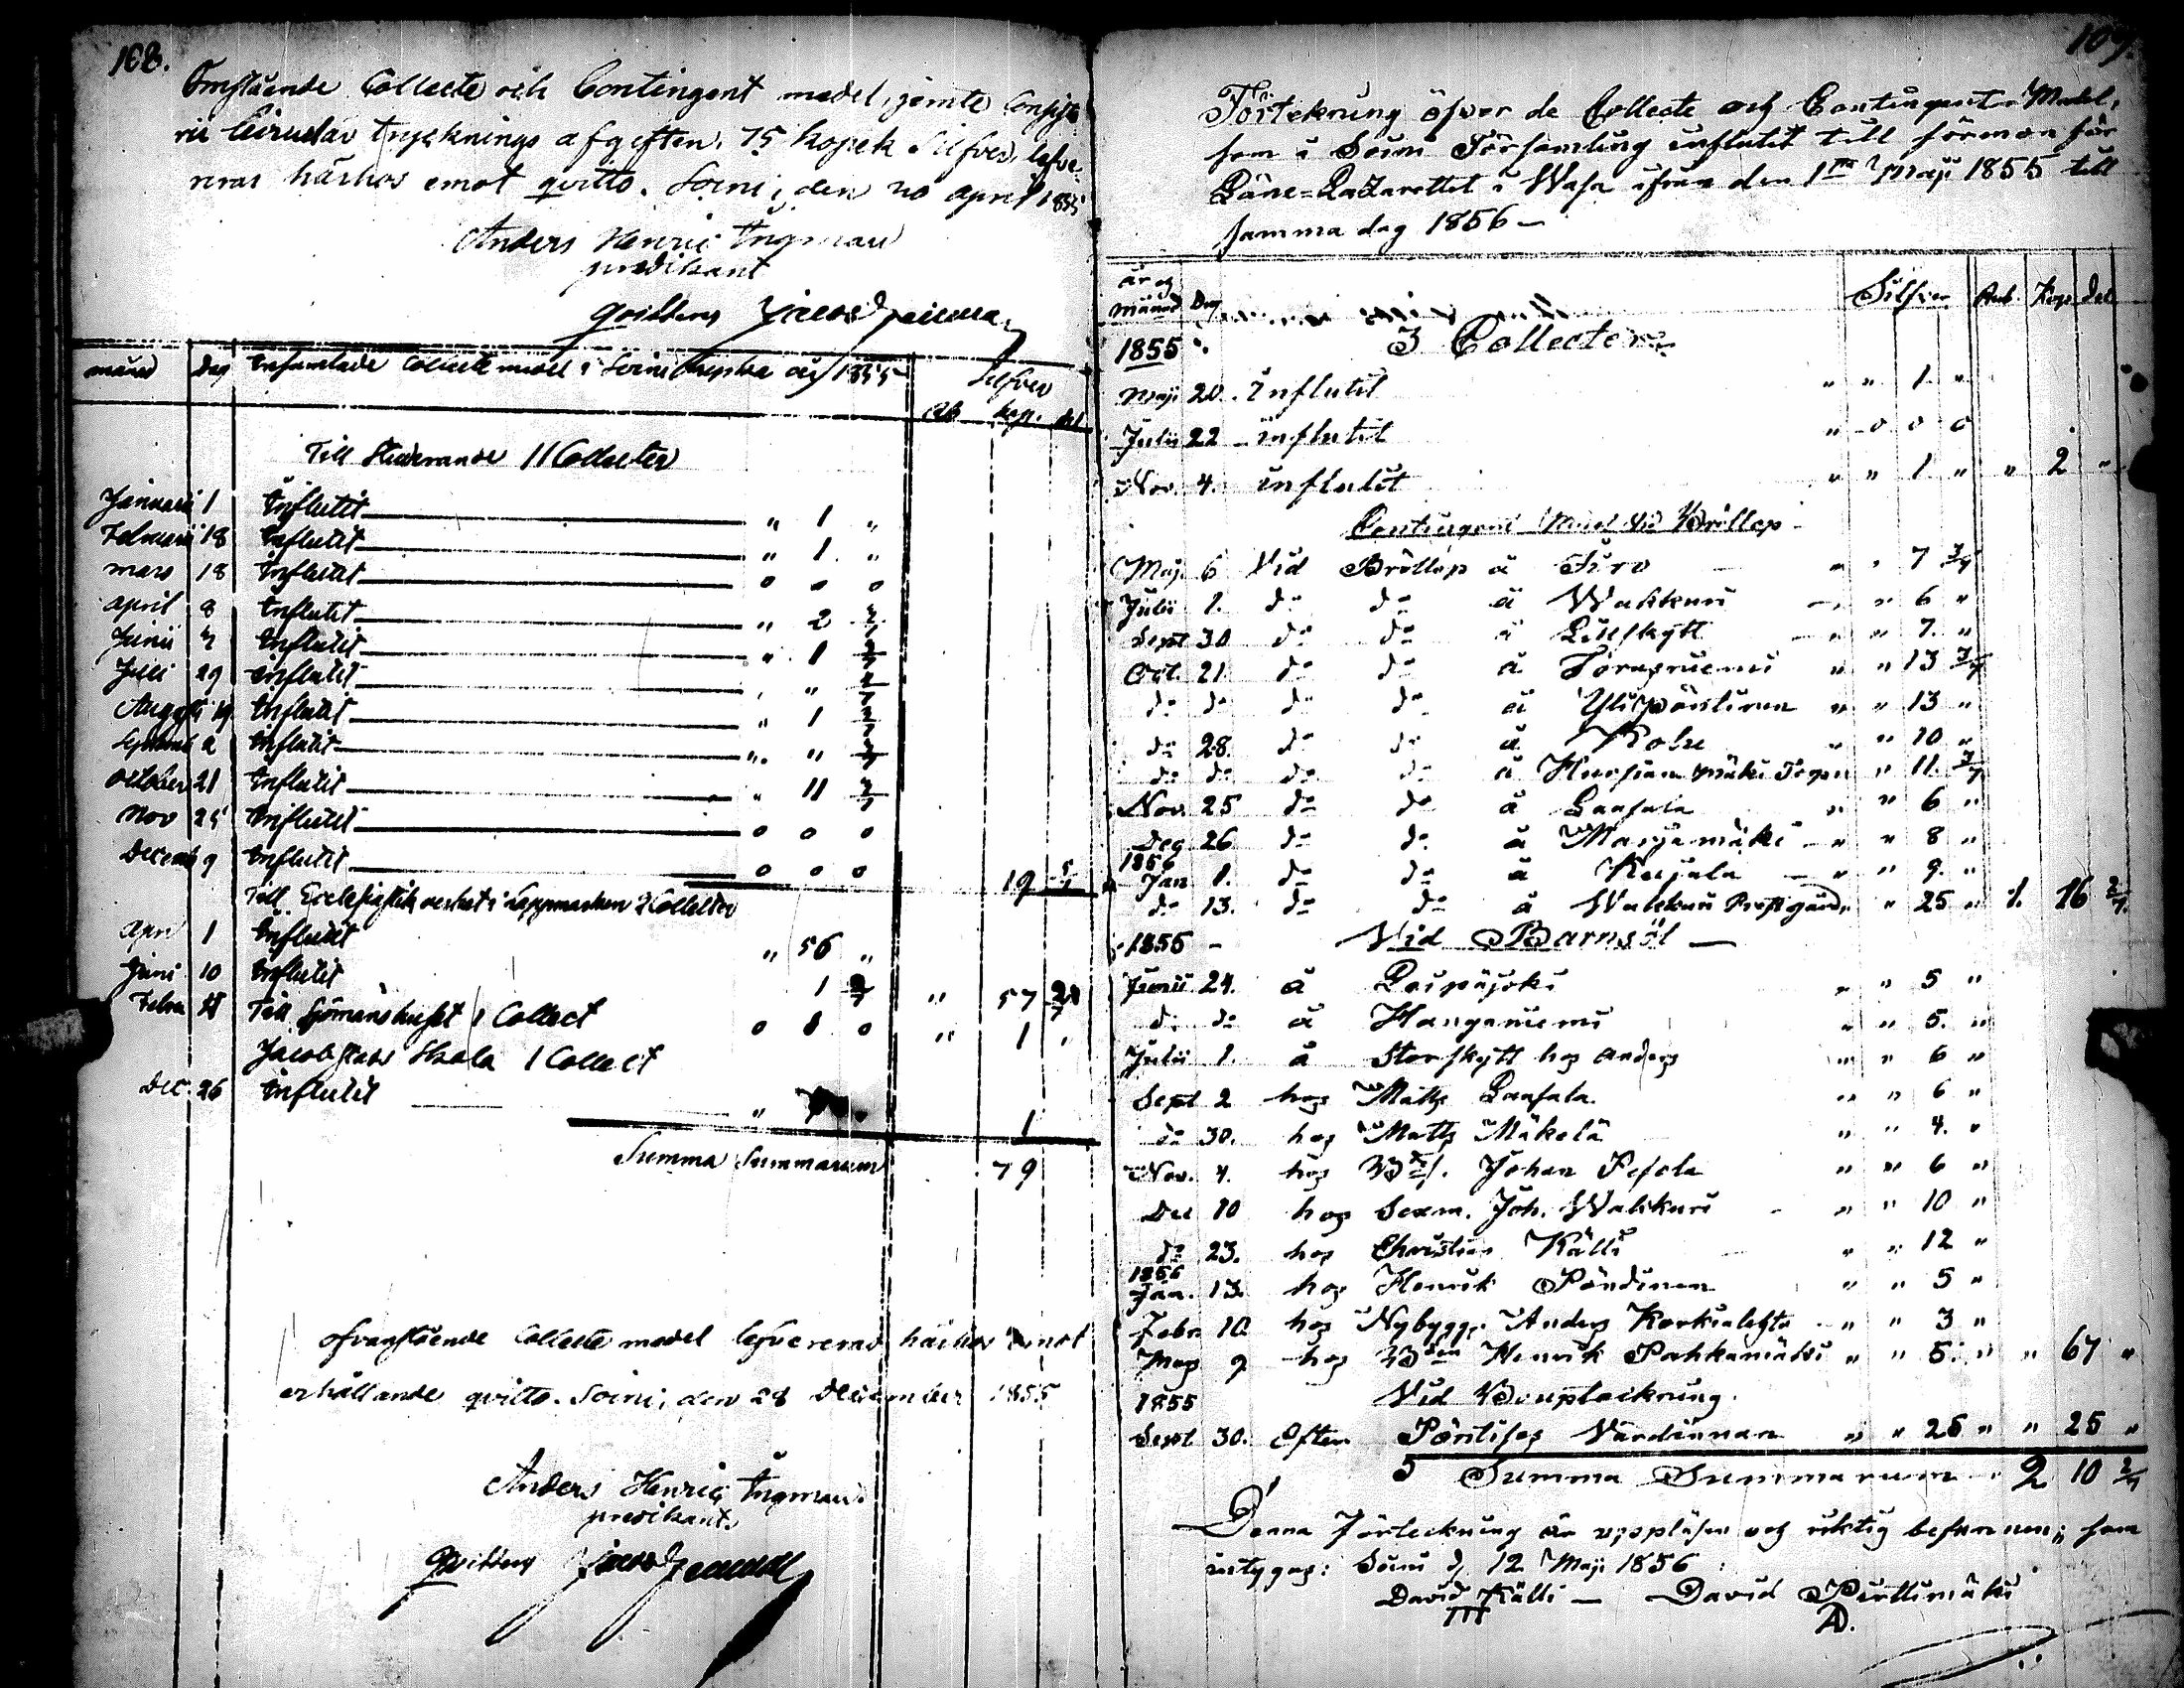 168.
Omstående Collecte och Contingent medel, jemte Consisto
rii Cirkulär trycknings afgiften, 75 kopek Silfver, lefve
reras härhos emot qvitto. Soini, den 20 april 1855
Anders Henric Ingman
predikant
qvitteras
månad Dag Insamlade Collecte medel i Soini Capella år 1855 Silfver
Rb kop. del
Till Studerande 11 Collecter
Januari 1 Influtit " 1 "
Februari 18 Influtit " 1 "
mars 18 Influtit 0 0 0
april 8 Influtit " 2
Junii Influtit " 1
Juli 29 Influtit " "
Augusti 19 Influtit " 1
Septemb 2 Influtit " "
October 21 Influtit " 11 2/7
Nov 25 Influtit 0 0 0
Decemb 9 Influtit 0 0 0 19 5/7
Till Ecclesiastik verket i Lappmarken 2 Collecter
April 1 Influtit " 56 "
Juni 10 Influtit 1 2/7 " 57 2/7
Febru Till Sjömanshuset 1 Collect 0 1 0 " 1 "
Jacobstads Skola 1 Collect
Dec 26 Influtit " 1
Summa Summarum 79
Ofvanstående Collecte medel lefvereras härhos emot
erhållande qvitto. Soini, den 28 December 1855
Anders Henric Ingman
predikant
Qvitteras
109.
Förtekning öfver de Collecte och Contingent-Medel,
som i Soini Församling influtit till förmon för
Läne-Lazarettet i Wasa ifrån den 1sta Maji 1855 till
samma dag 1856 -
år og månad Dag Silfver Rub. Kop. del
1855 3 Collecter
Maji 20. Influtit " " 1. "
Julii 22 influtit " 0 0 0
Nov. 4. influtit " " 1. " " 2 "
Contingent Medel vid Bröllop
Maj. 6 Vid Bröllop å Siro " " 7 3/7
Julii 1. do do å Wahkuri " " 6 "
Sept 30 do do å Liliskytt " " 7. "
Oct. 21. do do å " " 13 3/7
do do do do å " " 13 "
do 28. do do å " " 10 "
do do do do å " 11. 3/7
Nov. 25 do do å Laasala " " 6 "
Dec 26 do do å Marjamäki " " 8 "
1856
Jan 1. do do å Keijala " " 9. "
do 13. do do å Wahkuri " 25 " 1. 16 2/7
1855 - Vid Barnsöl -
Junii 24. å Laipäjoki " " 5 "
do do å Hanganiemi " " 5. "
Julii 1. å Storskytt hos Anders " " 6 "
Sept 2 hos Matts Laasala " " 6 "
do 30. hos Matts Mäkelä " " 4. "
Nov. 4. hos Johan Pesola " " 6 "
Dec 10 hos Sexm. Joh. Wahkuri " " 10 "
do 23. hos Christian Källi " " 12 "
1856
Jan. 13. hos Henrik Pöndinen " " 5 "
Febr. 10. hos Nybygg. Anders Korkialehto " " 3 "
Maj 9 hos Henrik Pahkamäki " " 5. " " 67 "
1855 Vid Bouptekning
Sept 30. Efter Värdinnan " " 25 " " 25 "
S Summa Summarum 2 10 2/7
Denna Förteckning är uppläsen och riktig befunnen; som
intygas: Soini d. 12 Maji 1856
David Källi - David Perttimäki